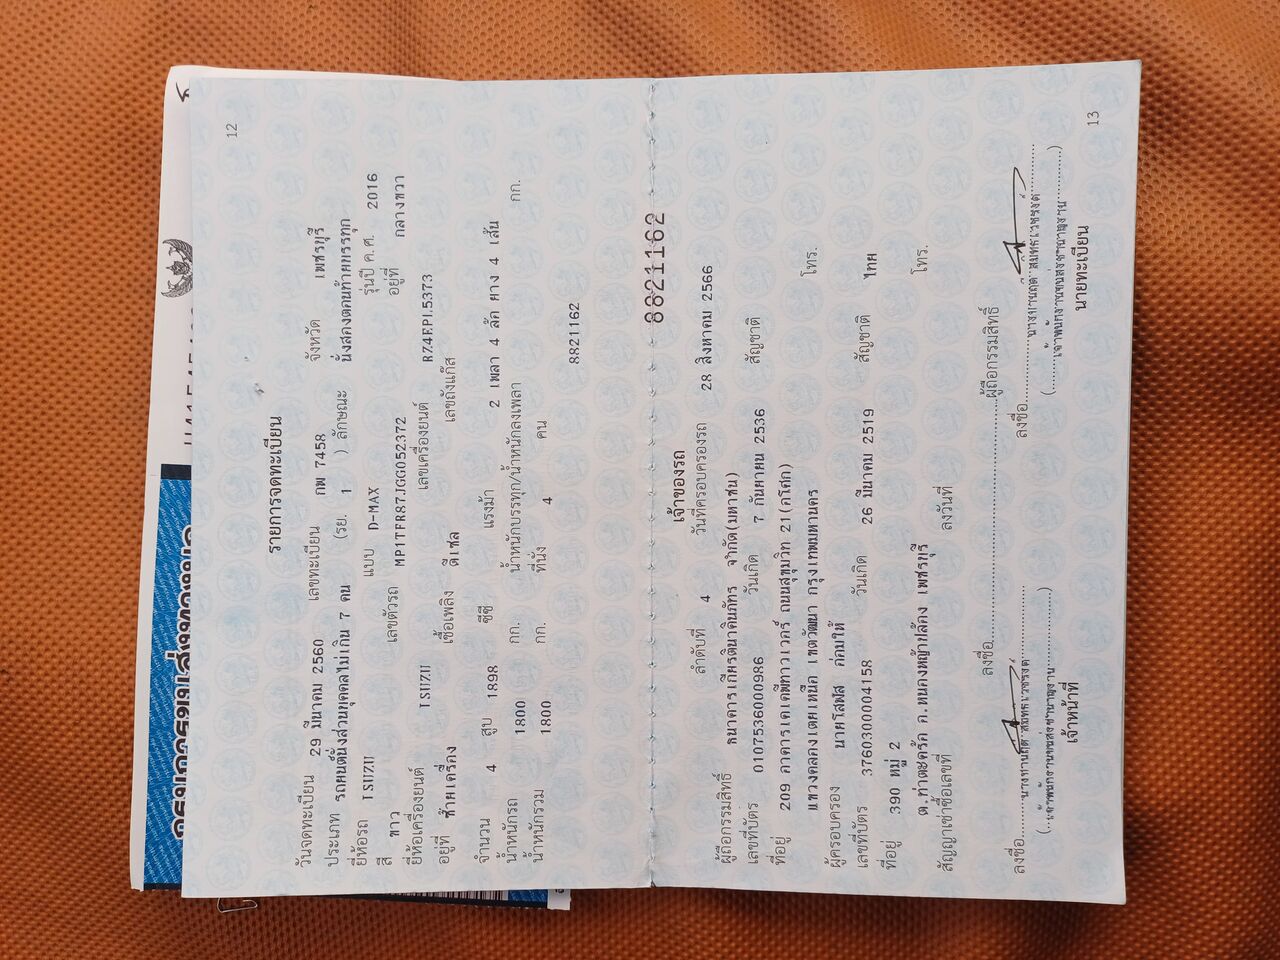 12
รายการจดทะเบียน
วันจดทะเบียน 29 มีนาคม 2560 เลขทะเบียน กพ 7458 จังหวัด เพชรบุรี
ประเภท รถยนต์นั่งส่วนบุคคลไม่เกิน 7 คน (รย. 1 ) ลักษณะ นั่งสองตอนท้ายบรรทุก
ยี่ห้อรถ ISUZU แบบ D-MAX รุ่นปี ค.ศ. 2016
สี ขาว เลขตัวรถ MP1TFR87JGG052372 อยู่ที่ กลางขวา
ยี่ห้อเครื่องยนต์ ISUZU เลขเครื่องยนต์ RZ4EPL5373
อยู่ที่ ซ้ายเครื่อง เชื้อเพลิง ดีเซล เลขถังแก๊ส
จำนวน 4 สูบ 1898 ซีซี แรงม้า 2 เพลา 4 ล้อ ยาง 4 เส้น
น้ำหนักรถ 1800 กก. น้ำหนักบรรทุก/น้ำหนักลงเพลา กก.
น้ำหนักรวม 1800 กก. ที่นั่ง 4 คน
8821162
8821162
เจ้าของรถ
ลำดับที่ 4 วันที่ครอบครองรถ 28 สิงหาคม 2566
ผู้ถือกรรมสิทธิ์ ธนาคารเกียรตินาคินภัทร จำกัด(มหาชน)
เลขที่บัตร 0107536000986 วันเกิด 7 กันยายน 2536 สัญชาติ
ที่อยู่ 209 อาคารเคเคพีทาวเวอร์ ถนนสุขุมวิท 21(อโศก)
แขวงคลองเตยเหนือ เขตวัฒนา กรุงเทพมหานคร โทร.
ผู้ครอบครอง นายโสฬส
เลขที่บัตร 3760300004158 วันเกิด 26 มีนาคม 2519 สัญชาติ ไทย
ที่อยู่ 390 หมู่ 2
ต.ท่าตะคร้อ อ.หนองหญ้าปล้อง เพชรบุรี โทร.
สัญญาเช่าซื้อเลขที่ ลงวันที่
ลงชื่อ ผู้ถือกรรมสิทธิ์
ลงชื่อ ลงชื่อ
(เจ้าพนักงานขนส่งชำนาญงาน) (เจ้าพนักงานขนส่งชำนาญงาน)
เจ้าหน้าที่ นายทะเบียน
13